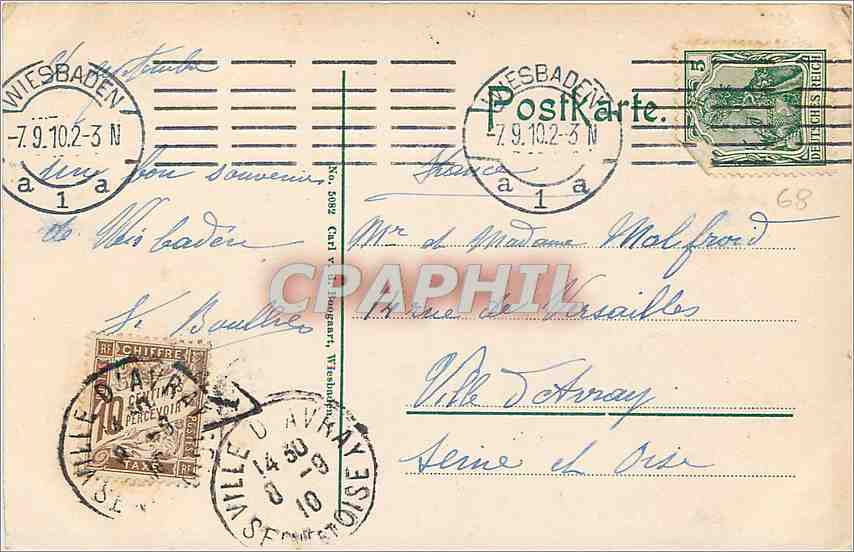 WIESBADEN
-7.9.10.2-3 N
a 1 a
septembre
un bon souvenir
de Wisbaden
No. 5082 Carl v. d. Boogaart, Wiesbaden
WIESBADEN
-7.9.10.2-3 N
a 1 a
Postkarte.
5
DEUTSCHES REICH
68
France
Mr et Madame Malfroid
rue de Versailles
Ville d'Avray
Seine et Oise
CPAPHIL
RF CHIFFRE RF
10 CENTIMES
A PERCEVOIR
TAXE
VILLE D'AVRAY
VILLE D'AVRAY
14 30
8 -9
10
SEINE-ET-OISE
T